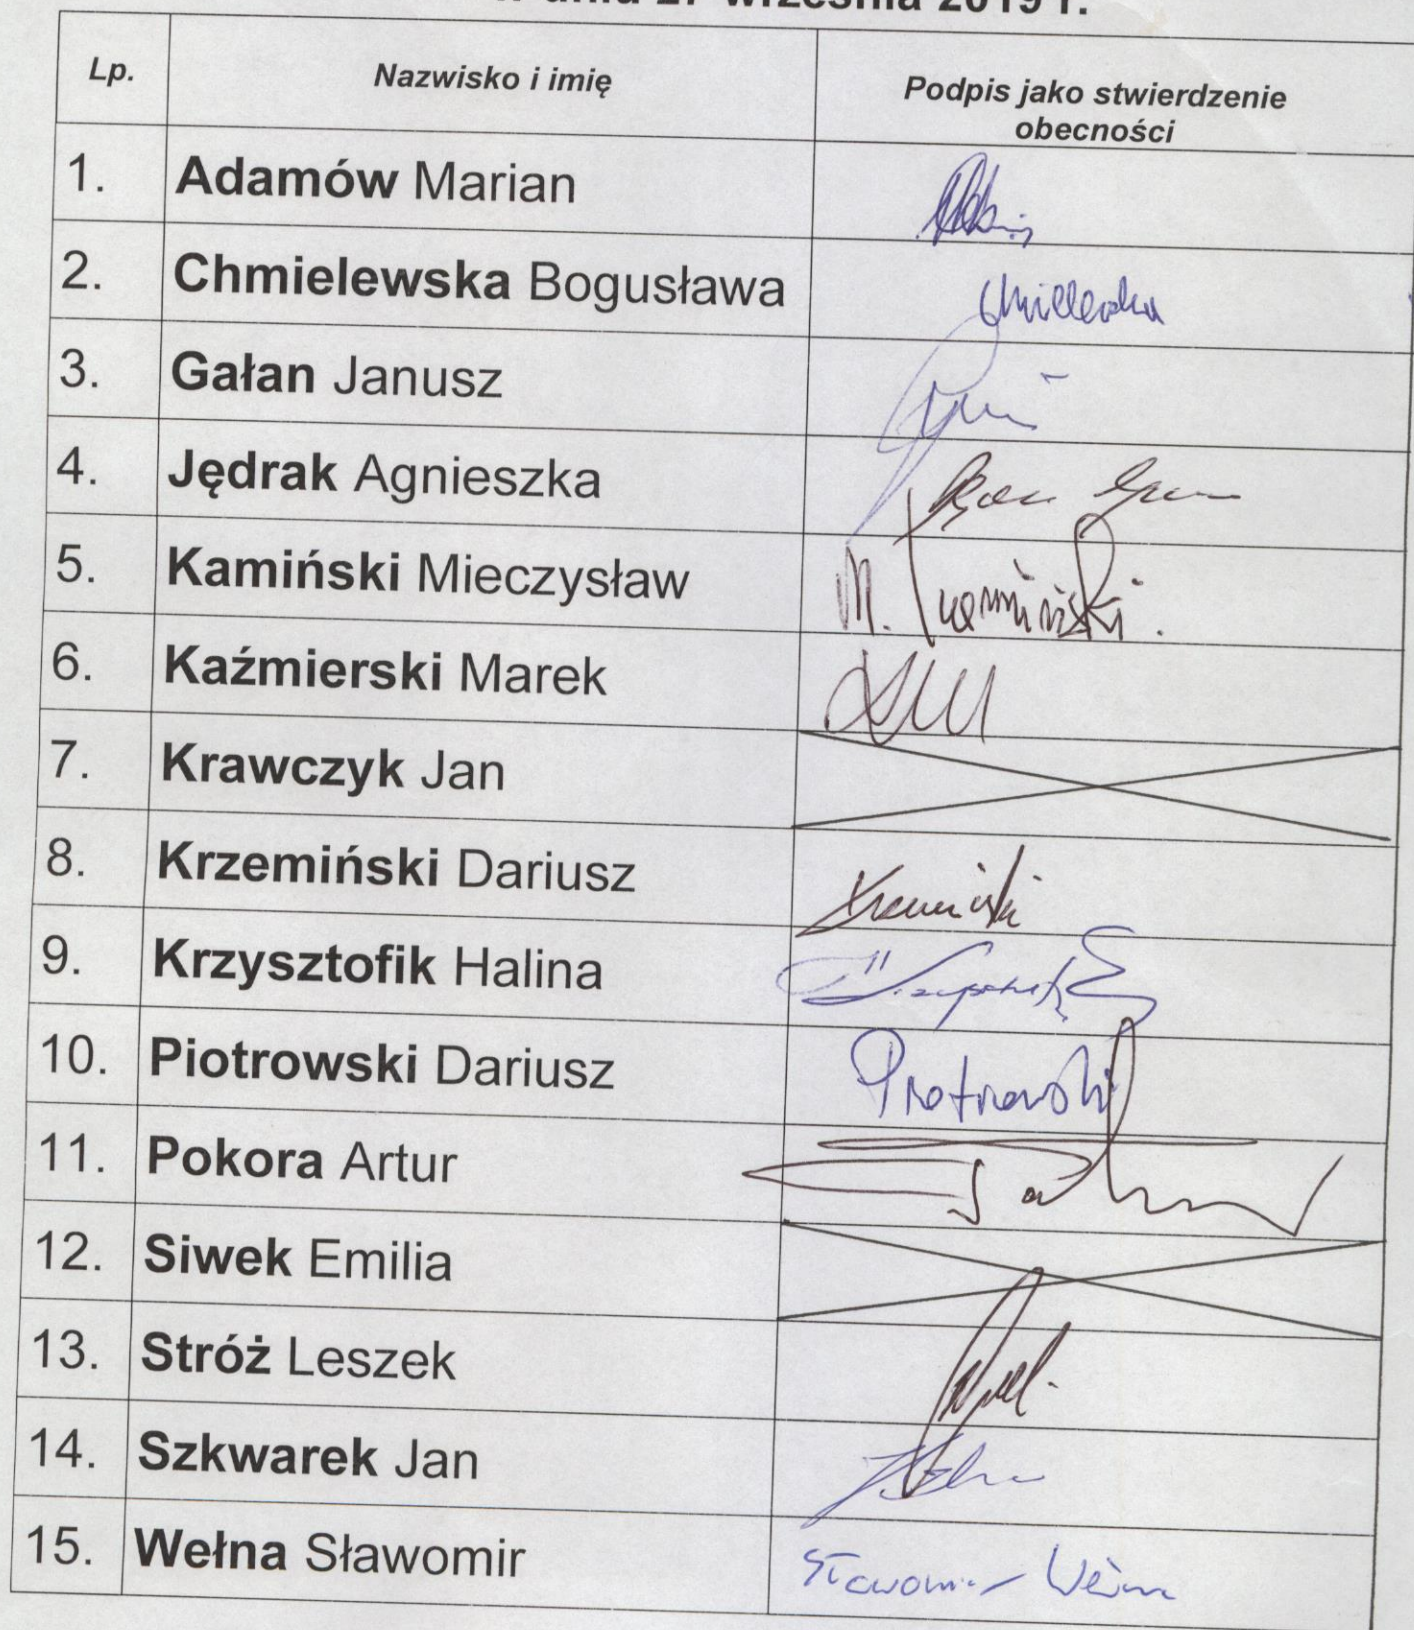 w dniu 27 września 2019 r.
Lp. Nazwisko i imię Podpis jako stwierdzenie obecności
1. Adamów Marian
2. Chmielewska Bogusława Chmielewska
3. Gałan Janusz
4. Jędrak Agnieszka
5. Kamiński Mieczysław M. Kamiński.
6. Kaźmierski Marek
7. Krawczyk Jan
8. Krzemiński Dariusz Krzemiński
9. Krzysztofik Halina
10. Piotrowski Dariusz Piotrowski
11. Pokora Artur
12. Siwek Emilia
13. Stróż Leszek
14. Szkwarek Jan
15. Wełna Sławomir Sławomir Wełna